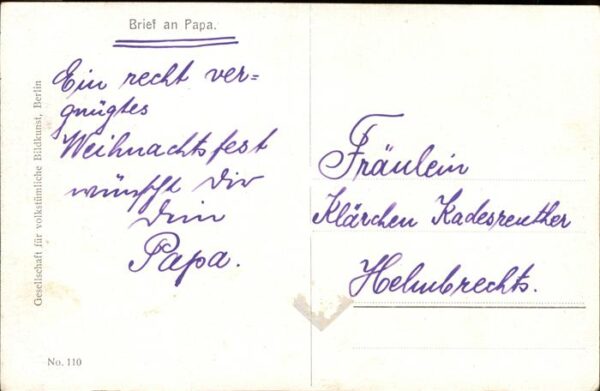 Brief an Papa.
Ein recht ver=
gnügtes
Weihnachtsfest
wünscht Dir
Dein
Papa.
Fräulein
Klärchen Kadesreuther
Helmbrechts.
Gesellschaft für volkstümliche Bildkunst, Berlin
No. 110